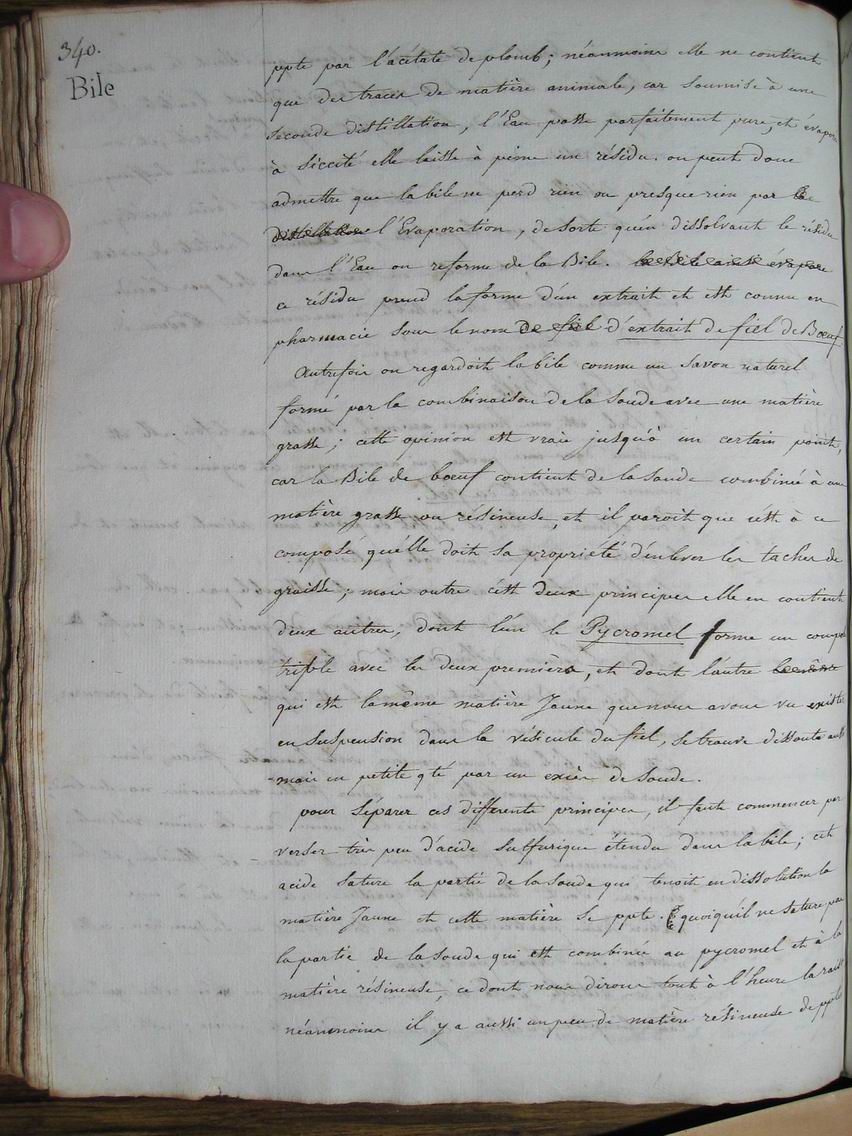 340.
Bile
ppte par l'acétate de plomb; néanmoins elle ne contient
que des traces de matière animale, car soumise à une
seconde distillation, l'Eau passe parfaitement pure, et évaporé
à siccité elle laisse à peine un résidu. on peut donc
admettre que la bile ne perd rien ou presque rien par la
distillation l'Evaporation, de sorte qu'en dissolvant le résidu
dans l'Eau on reforme de la Bile. la Bile ainsi évaporé
ce résidu prend la forme d'un extrait et est connu en
pharmacie sous le nom de fiel d'extrait de fiel de Bœuf.
Autrefois on regardoit la bile comme un savon naturel
formé par la combinaison de la soude avec une matière
grasse; cette opinion est vraie jusqu'à un certain point,
car la Bile de bœuf contient de la soude combinée à une
matière grasse ou résineuse, et il paroit que c'est à ce
composé qu'elle doit sa propriété d'enlever les taches de
graisse; mais outre c'est deux principes elle en contient
deux autres, dont l'un le Pycromel forme un compo
triple avec les deux premiers, et dont l'autre
qui est la même matière Jaune que nous avons vu exister
en suspension dans la vésicule du fiel, se trouve dissoute aussi
-mais en petite qté par un excès de soude.
pour séparer ces différents principes, il faut commencer par
verser très peu d'acide sulfurique étendu dans la bile; cet
acide sature la partie de la soude qui tenoit en dissolution la
matière Jaune et cette matière se ppte. quoiqu'il ne sature pas
la partie de la soude qui est combinée au pycromel et à la
matière résineuse, ce dont nous dirons tout à l'heure la raison
néanmoins il y a aussi un peu de matière résineuse de